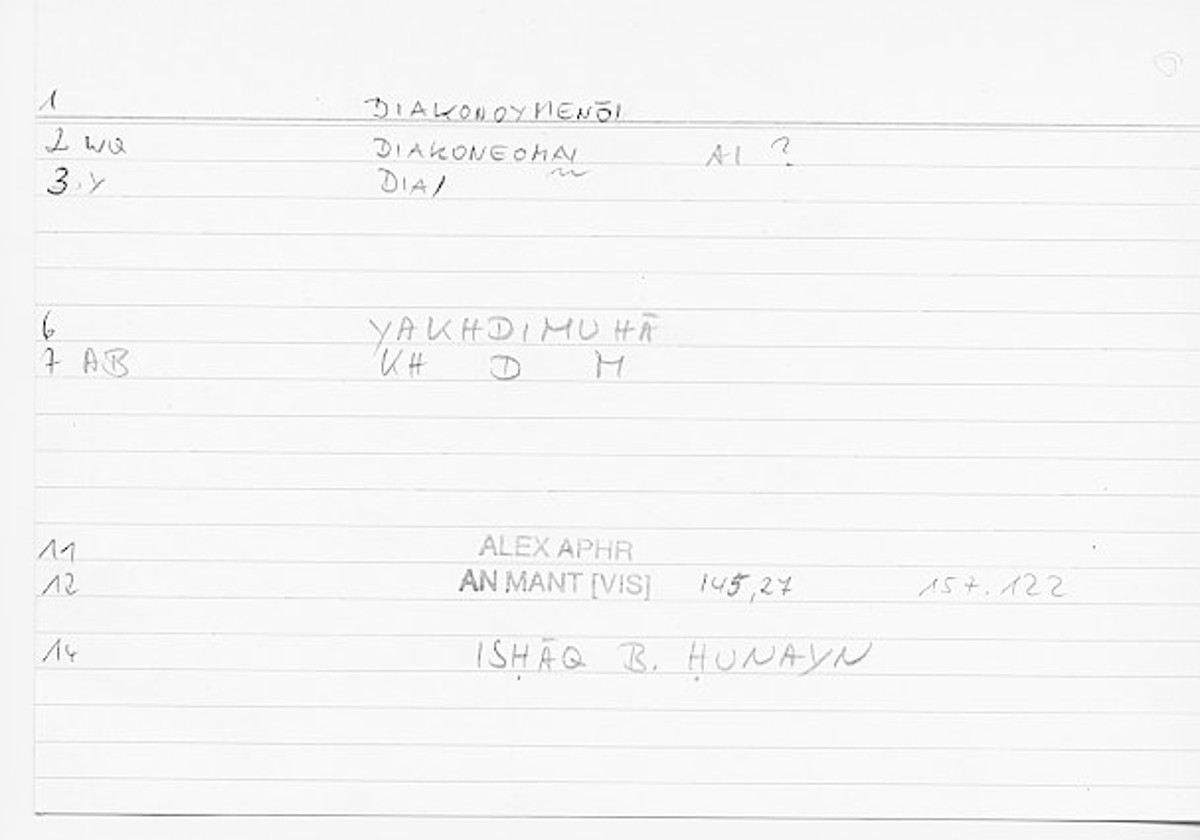 1 DIAKONOYMENŌI
2 WQ DIAKONEOMAI AI ?
3.Y DIA/
6 YAKHDIMUHĀ
7 AB KH D M
11 ALEX APHR
12 AN MANT [VIS] 145,27 157.122
14 ISḤĀQ B. ḤUNAYN